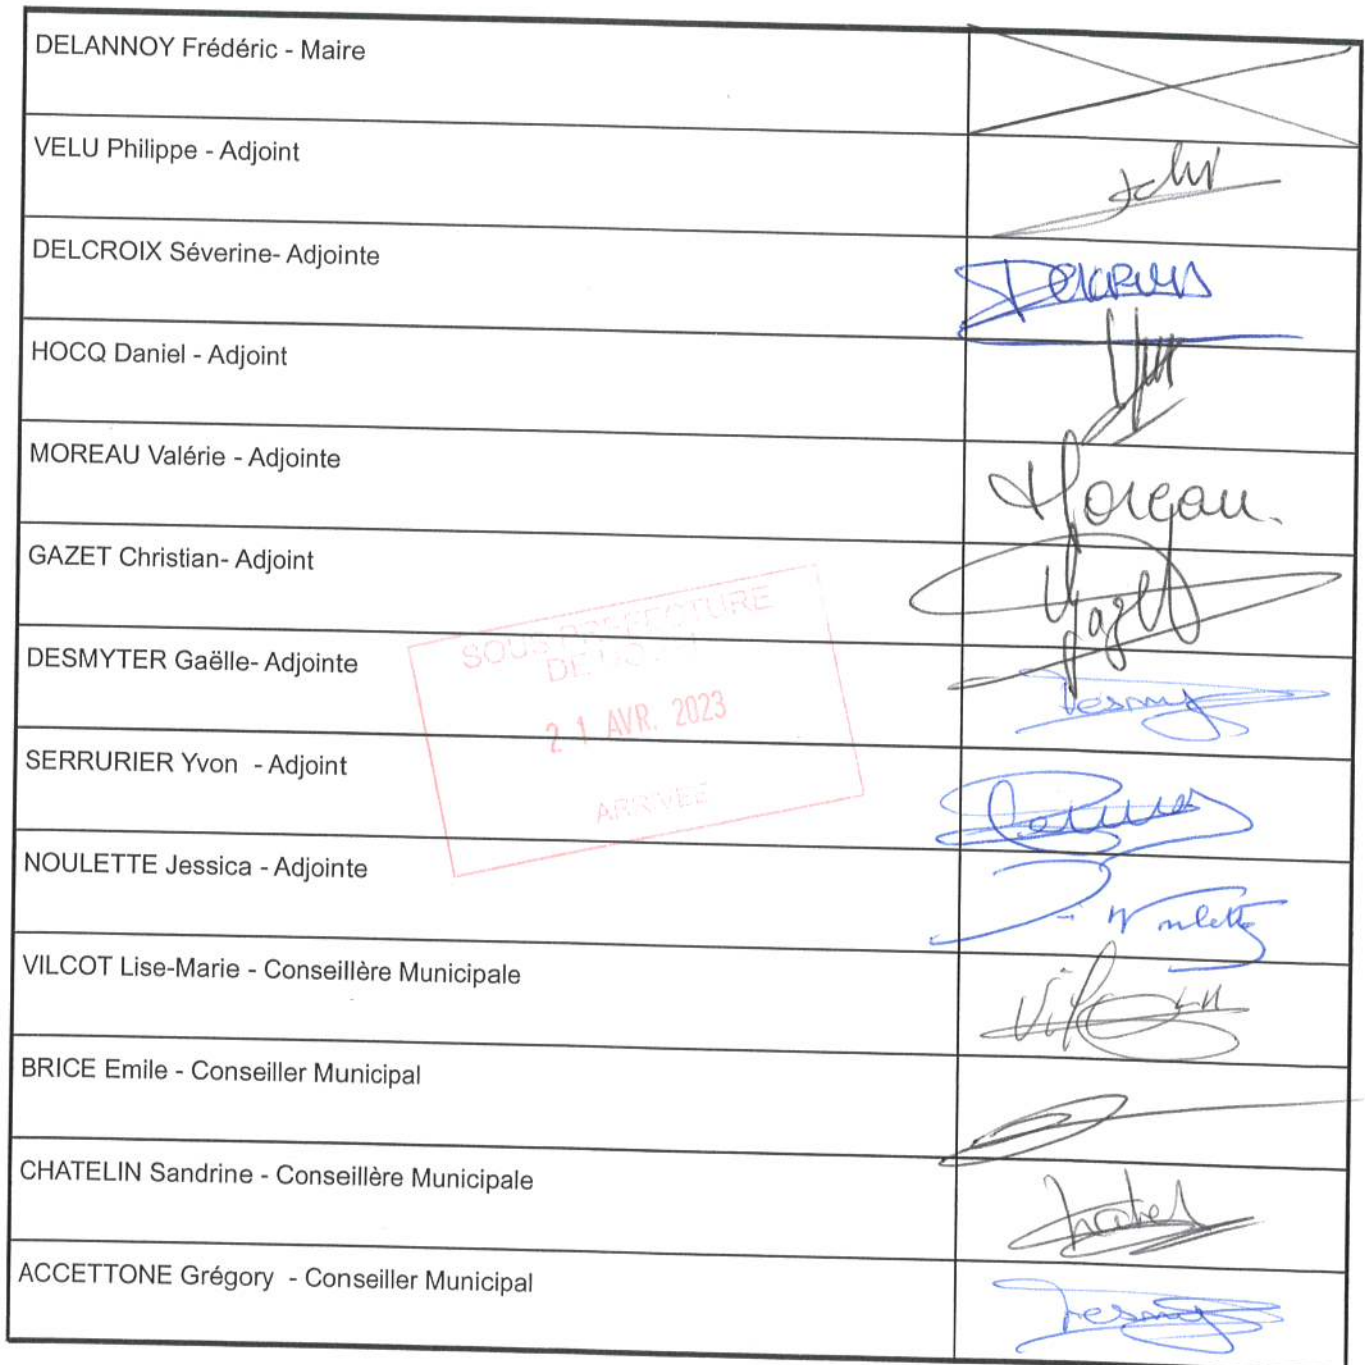 DELANNOY Frédéric - Maire
VELU Philippe - Adjoint
DELCROIX Séverine- Adjointe
HOCQ Daniel - Adjoint
MOREAU Valérie - Adjointe
Moreau.
GAZET Christian- Adjoint
Gazet
SOUS PREFECTURE
DE DOUAI
DESMYTER Gaëlle- Adjointe
Desmy
21 AVR. 2023
SERRURIER Yvon - Adjoint
ARRIVEE
NOULETTE Jessica - Adjointe
Noulette
VILCOT Lise-Marie - Conseillère Municipale
BRICE Emile - Conseiller Municipal
CHATELIN Sandrine - Conseillère Municipale
ACCETTONE Grégory - Conseiller Municipal
Desmy